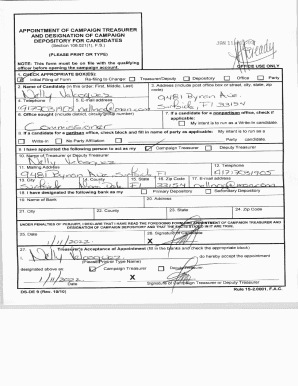 APPOINTMENT OF CAMPAIGN TREASURER
AND DESIGNATION OF CAMPAIGN
DEPOSITORY FOR CANDIDATES
(Section 106.021(1), F.S.)
(PLEASE PRINT OR TYPE)
NOTE: This form must be on file with the qualifying
officer before opening the campaign account.
OFFICE USE ONLY
1. CHECK APPROPRIATE BOX(ES):
Initial Filing of Form Re-filing to Change: Treasurer/Deputy Depository Office Party
2. Name of Candidate (in this order: First, Middle, Last)
Nelly Velasquez
3. Address (include post office box or street, city, state, zip
code)
9481 Byron Ave
Surfside Fl 33154
4. Telephone 5. E-mail address
6. Office sought (include district, circuit, group number)
Commissioner
7. If a candidate for a nonpartisan office, check if
applicable:
My intent is to run as a Write-In candidate.
8. If a candidate for a partisan office, check block and fill in name of party as applicable: My intent is to run as a
Write-In No Party Affiliation Party candidate.
9. I have appointed the following person to act as my Campaign Treasurer Deputy Treasurer
10. Name of Treasurer or Deputy Treasurer
Nelly Velasquez
11. Mailing Address
9481 Byron Ave, Surfside Fl
12. Telephone
13. City 14. County 15. State 16. Zip Code 17. E-mail address
Surfside Miami Dade Fl 33154
18. I have designated the following bank as my Primary Depository Secondary Depository
19. Name of Bank 20. Address
21. City 22. County 23. State 24. Zip Code
UNDER PENALTIES OF PERJURY, I DECLARE THAT I HAVE READ THE FOREGOING FORM FOR APPOINTMENT OF CAMPAIGN TREASURER AND
DESIGNATION OF CAMPAIGN DEPOSITORY AND THAT THE FACTS STATED IN IT ARE TRUE.
25. Date
1/11/2022
26. Signature of Candidate
X
27. Treasurer's Acceptance of Appointment (fill in the blanks and check the appropriate block)
I, Nelly Velasquez , do hereby accept the appointment
(Please Print or Type Name)
designated above as: Campaign Treasurer Deputy Treasurer.
1/11/2022
X
Date Signature of Campaign Treasurer or Deputy Treasurer
DS-DE 9 (Rev. 10/10) Rule 1S-2.0001, F.A.C.